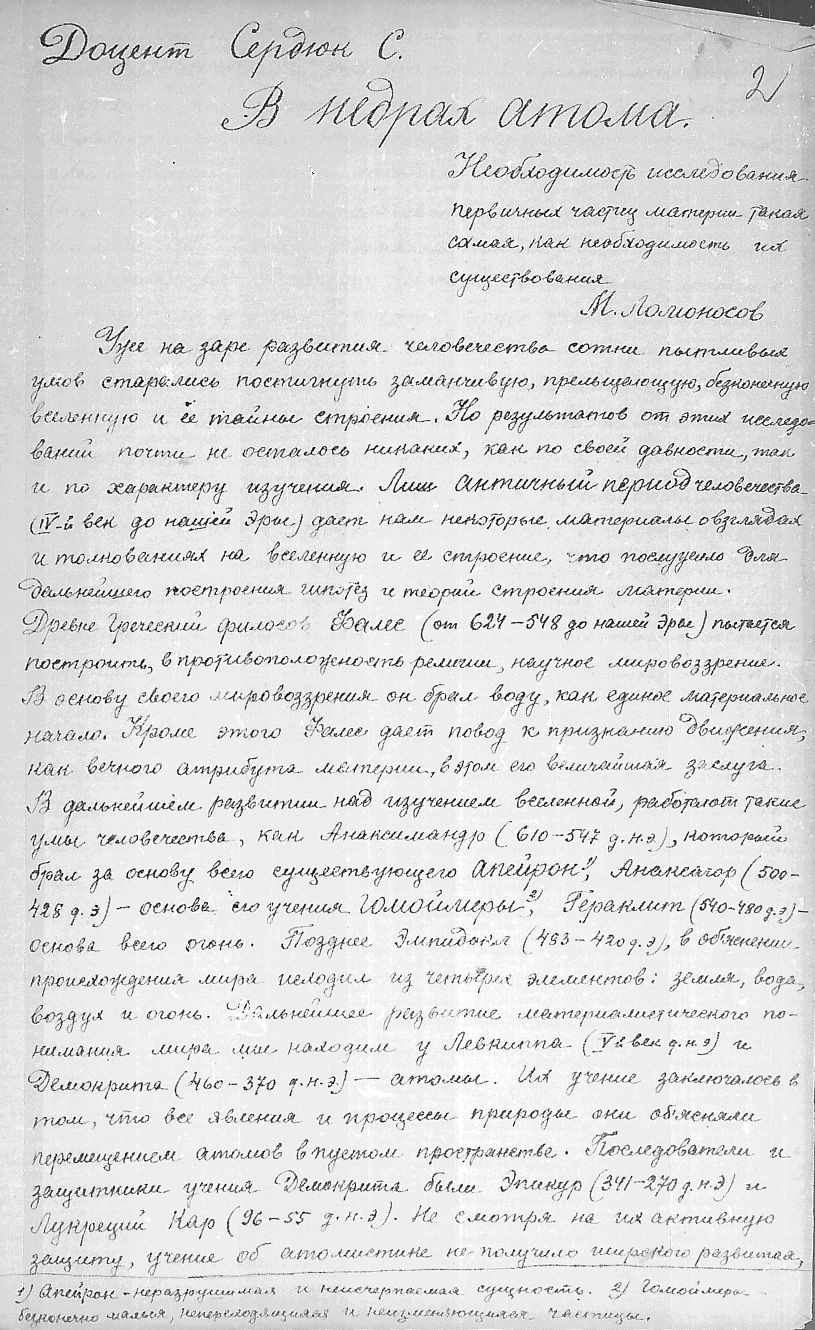 Доцент Сердюк С.
2
В недрах атома.
Необходимость исследования
первичных частиц материи такая
самая, как необходимость их
существования
М. Ломоносов
Уже на заре развития человечества сотни пытливых
умов старались постигнуть заманчивую, прельщающую, безконечную
вселенную и её тайны строения. Но результатов от этих исследо-
ваний почти не осталось никаких, как по своей давности, так
и по характеру изучения. Лиш античный период человечества
(IV-й век до нашей эры) дает нам некоторые материалы о взглядах
и толкованиях на вселенную и её строение, что послужило для
дальнейшего построения гипотез и теорий строения материи.
Древне Греческий философ Фалес (от 624-548 до нашей эры) пытается
построить, в противоположность религии, научное мировоззрение.
В основу своего мировоззрения он брал воду, как единое материальное
начало. Кроме этого Фалес дает повод к признанию движения,
как вечного атрибута материи, в этом его величайшая заслуга.
В дальнейшем развитии над изучением вселенной, работают такие
умы человечества, как Анаксимандр (610-547 д.н.э), который
брал за основу всего существующего апейрон 1), Анаксагор (500-
428 д.э) - основа его учения гомоймеры 2), Гераклит (540-480 д.э) -
основа всего огонь. Позднее Эмпидокл (483-420 д.э), в обяснении
происхождения мира исходил из четырех элементов: земля, вода,
воздух и огонь. Дальнейшее развитие материалистического по-
нимания мира мы находим у Левкиппа (V й век д.н.э) и
Демокрита (460-370 д.н.э.) — атомы. Их учение заключалось в
том, что все явления и процессы природы они обясняли
перемещением атомов в пустом пространстве. Последователи и
защитники учения Демокрита были Эпикур (341-270 д.н.э) и
Лукреций Кар (96-55 д.н.э). Не смотря на их активную
защиту, учение об атомистике не получило широкого развития,
1) Апейрон - неразрушимая и неисчерпаемая сущность. 2) Гомоймеры -
безконечно малыя, непереходящияся и неизменяющияся частицы.